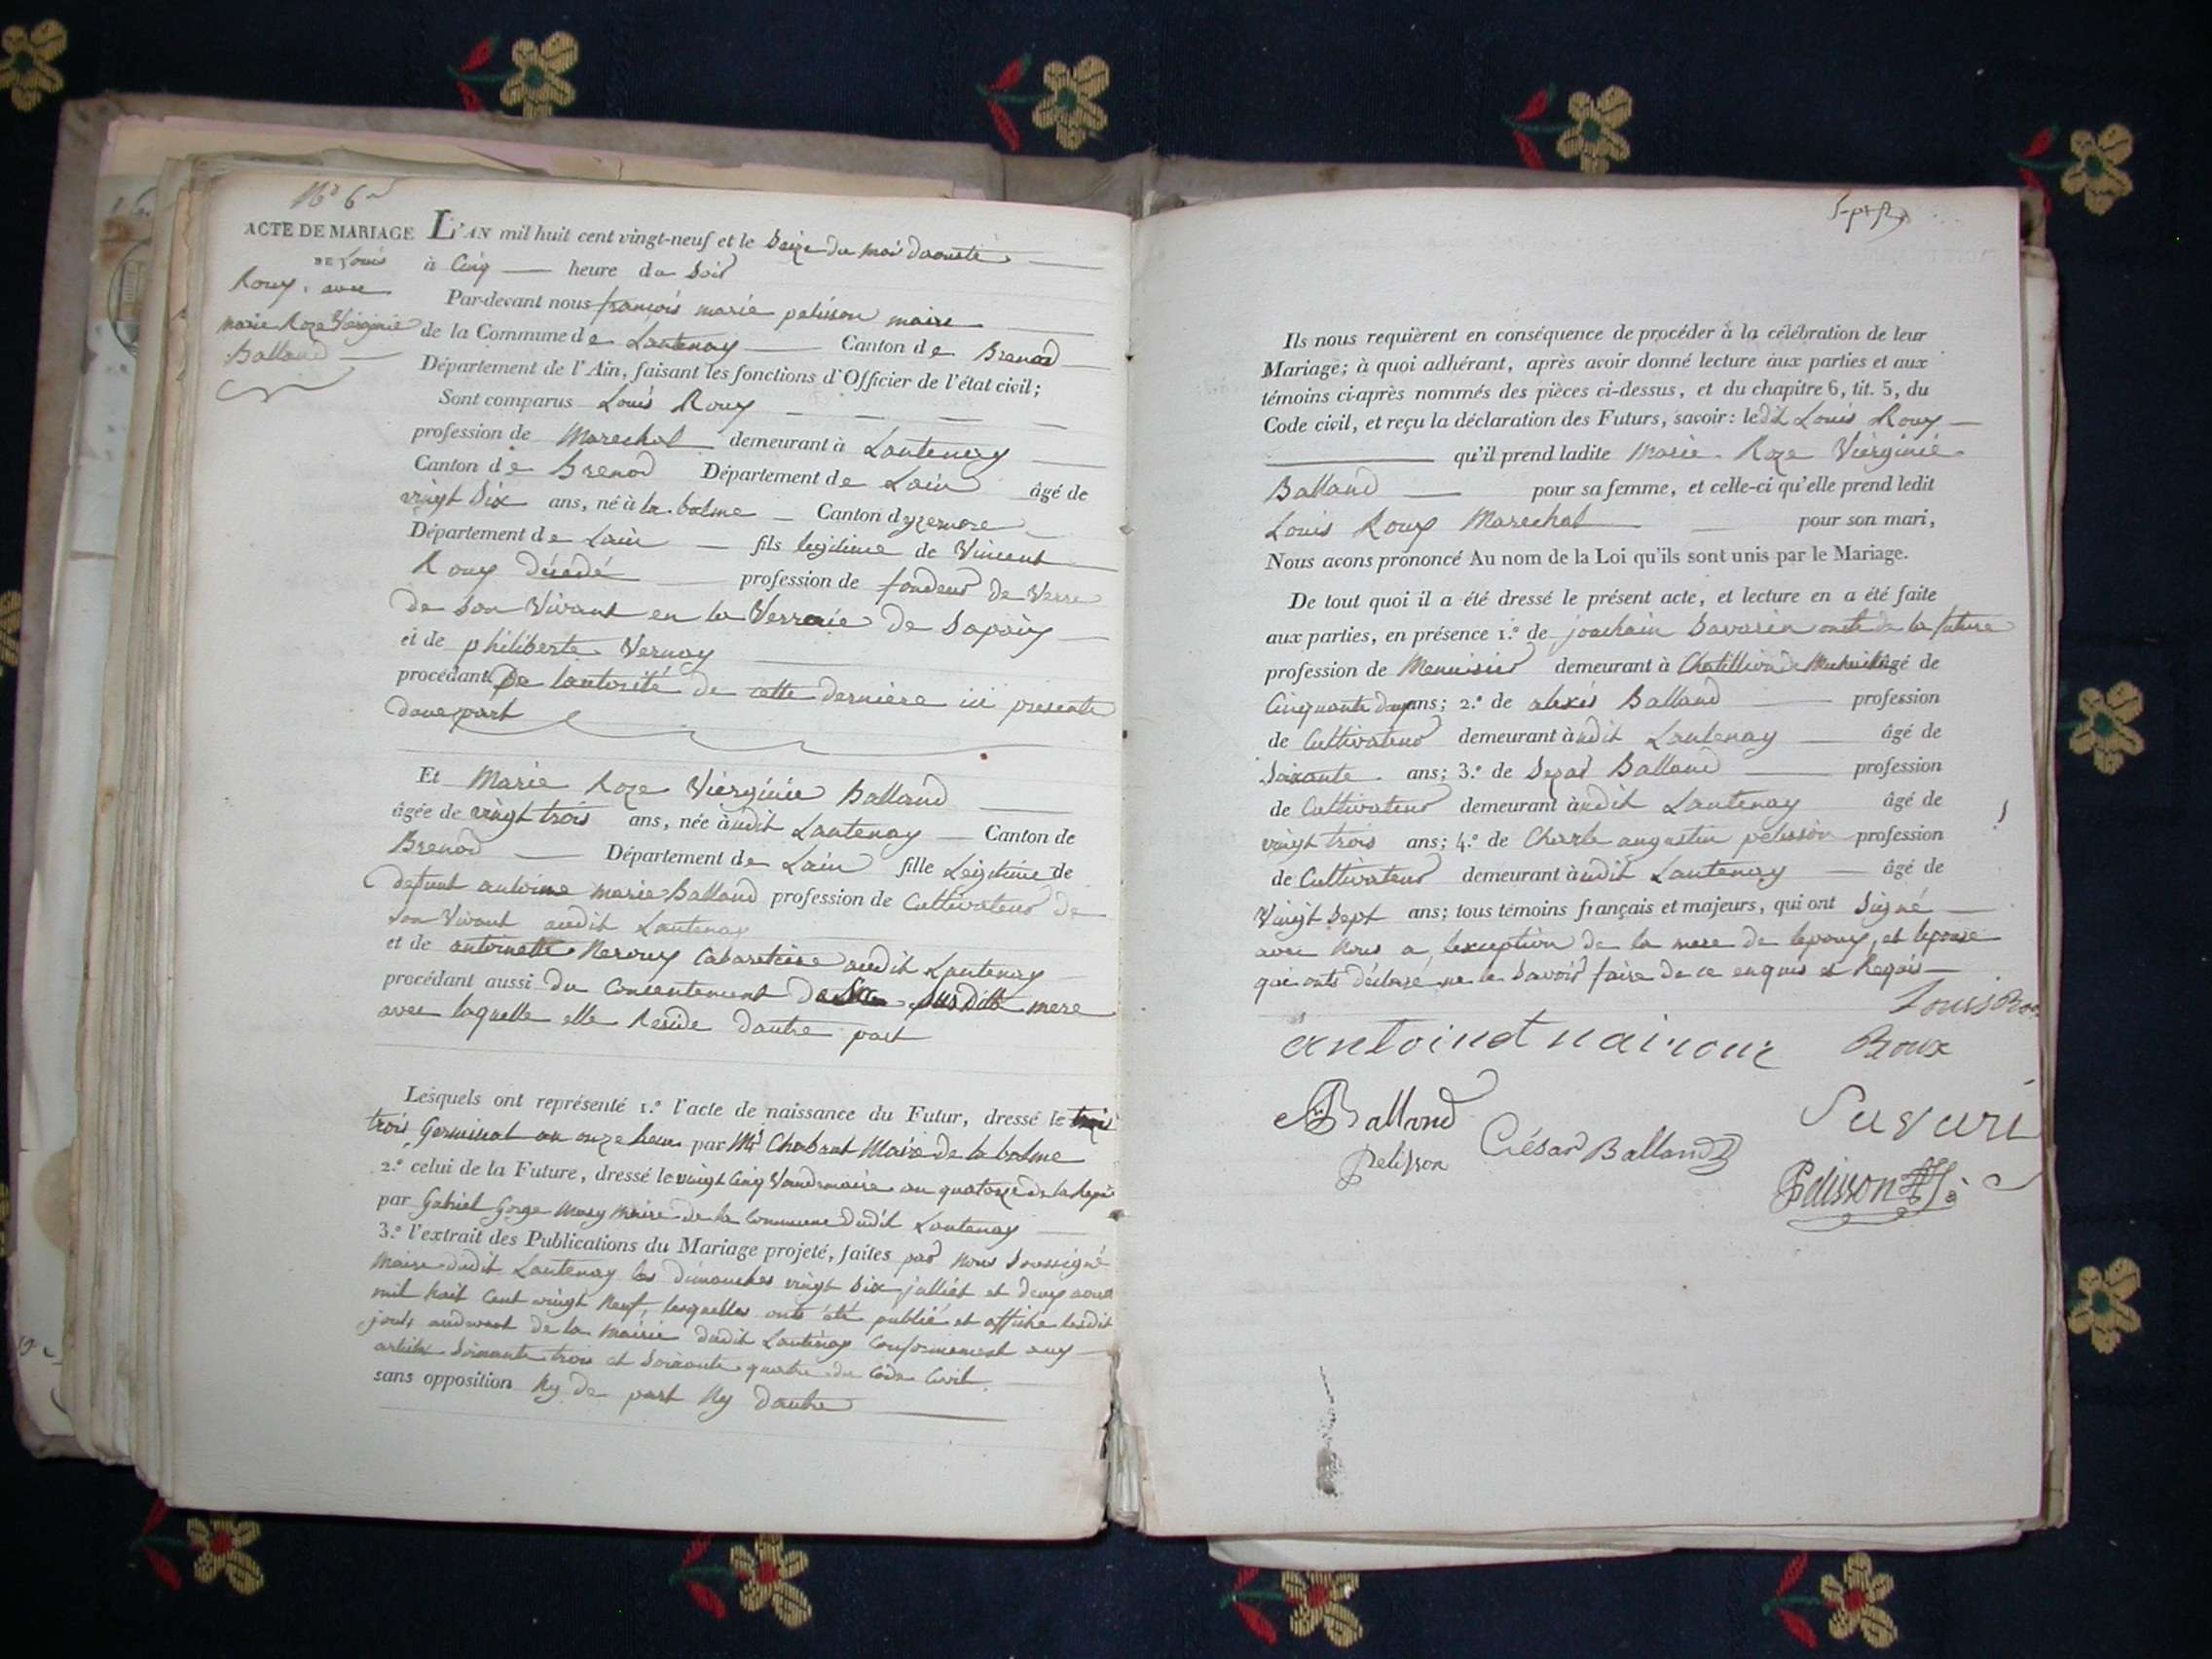 N° 6
ACTE DE MARIAGE
DE Louis
Rouy avec
marie Roze Viérginié
Balland
L'AN mil huit cent vingt-neuf et le Seize du moi daouste
à Cinq heure du Soir
Par-devant nous françois marie pelisson maire
de la Commune de Lantenay Canton de Brenod
Département de l'Ain, faisant les fonctions d'Officier de l'état civil;
Sont comparus Louis Rouy
profession de Marechal demeurant à Lantenay
Canton de Brenod Département de Lain âgé de
vingt Six ans, né à la balme Canton dyzernore
Département de Lain fils legitime de Vincent
Rouy décédé profession de fondeur de Verre
de Son Vivant en la Verraie de
et de philiberte Vernay
procédant De lautorité de cette derniere ici presente
dune part
Et Marie Roze Viérginie Balland
âgée de vingt trois ans, née àudit Lantenay Canton de
Brenod Département de Lain fille Legitime de
defunt antoine marie Balland profession de Cultivateur de
son Vivant audit Lantenay
et de antoinette Neroux Cabaretiere audit Lantenay
procédant aussi du Consentement de Sa Susdite mere
avec laquelle elle Reside dautre part
Lesquels ont représenté 1.° l'acte de naissance du Futur, dressé le
trois Germinal an onze par Mr Chabant Maire de la balme
2.° celui de la Future, dressé le vingt Cinq Vandemaire an quatorze de la
par Gabriel Gorge maire de la Commune dudit Lantenay
3.° l'extrait des Publications du Mariage projeté, faites par nous Soussigné
Maire dudit Lantenay les dimanches vingt Six julliet et deux aoust
mil huit Cent vingt Neuf, lesquelles onts été publié et affiché lesdit
jours audevant de la mairie dudit Lantenay Conformement aux
articles Soixante trois et Soixante quatre du Code Civil
sans opposition Ny de part Ny dautre
Ils nous requièrent en conséquence de procéder à la célébration de leur
Mariage; à quoi adhérant, après avoir donné lecture aux parties et aux
témoins ci-après nommés des pièces ci-dessus, et du chapitre 6, tit. 5, du
Code civil, et reçu la déclaration des Futurs, savoir: ledit Louis Rouy
qu'il prend ladite Marie Roze Viérginié
Balland pour sa femme, et celle-ci qu'elle prend ledit
Louis Rouy Marechal pour son mari,
Nous avons prononcé Au nom de la Loi qu'ils sont unis par le Mariage.
De tout quoi il a été dressé le présent acte, et lecture en a été faite
aux parties, en présence 1.° de joachain Savarin oncle de la future
profession de Menuisier demeurant à Chatillion de Michaille âgé de
Cinquante deux ans; 2.° de alexis Balland profession
de Cultivateur demeurant àudit Lantenay âgé de
Soixante ans; 3.° de Sezar Balland profession
de Cultivateur demeurant àudit Lantenay âgé de
vingt trois ans; 4.° de Charle augustin pelisson profession
de Cultivateur demeurant àudit Lantenay âgé de
Vingt Sept ans; tous témoins français et majeurs, qui ont Signé
avec Nous a lexception de la mere de lepoux, et lepouse
qui onts déclaré ne le Savoir faire de ce enquis et Requis
Louis Rou
antoinet nairoux Roux
A Balland Savari
Pelisson César Balland
Pelisson